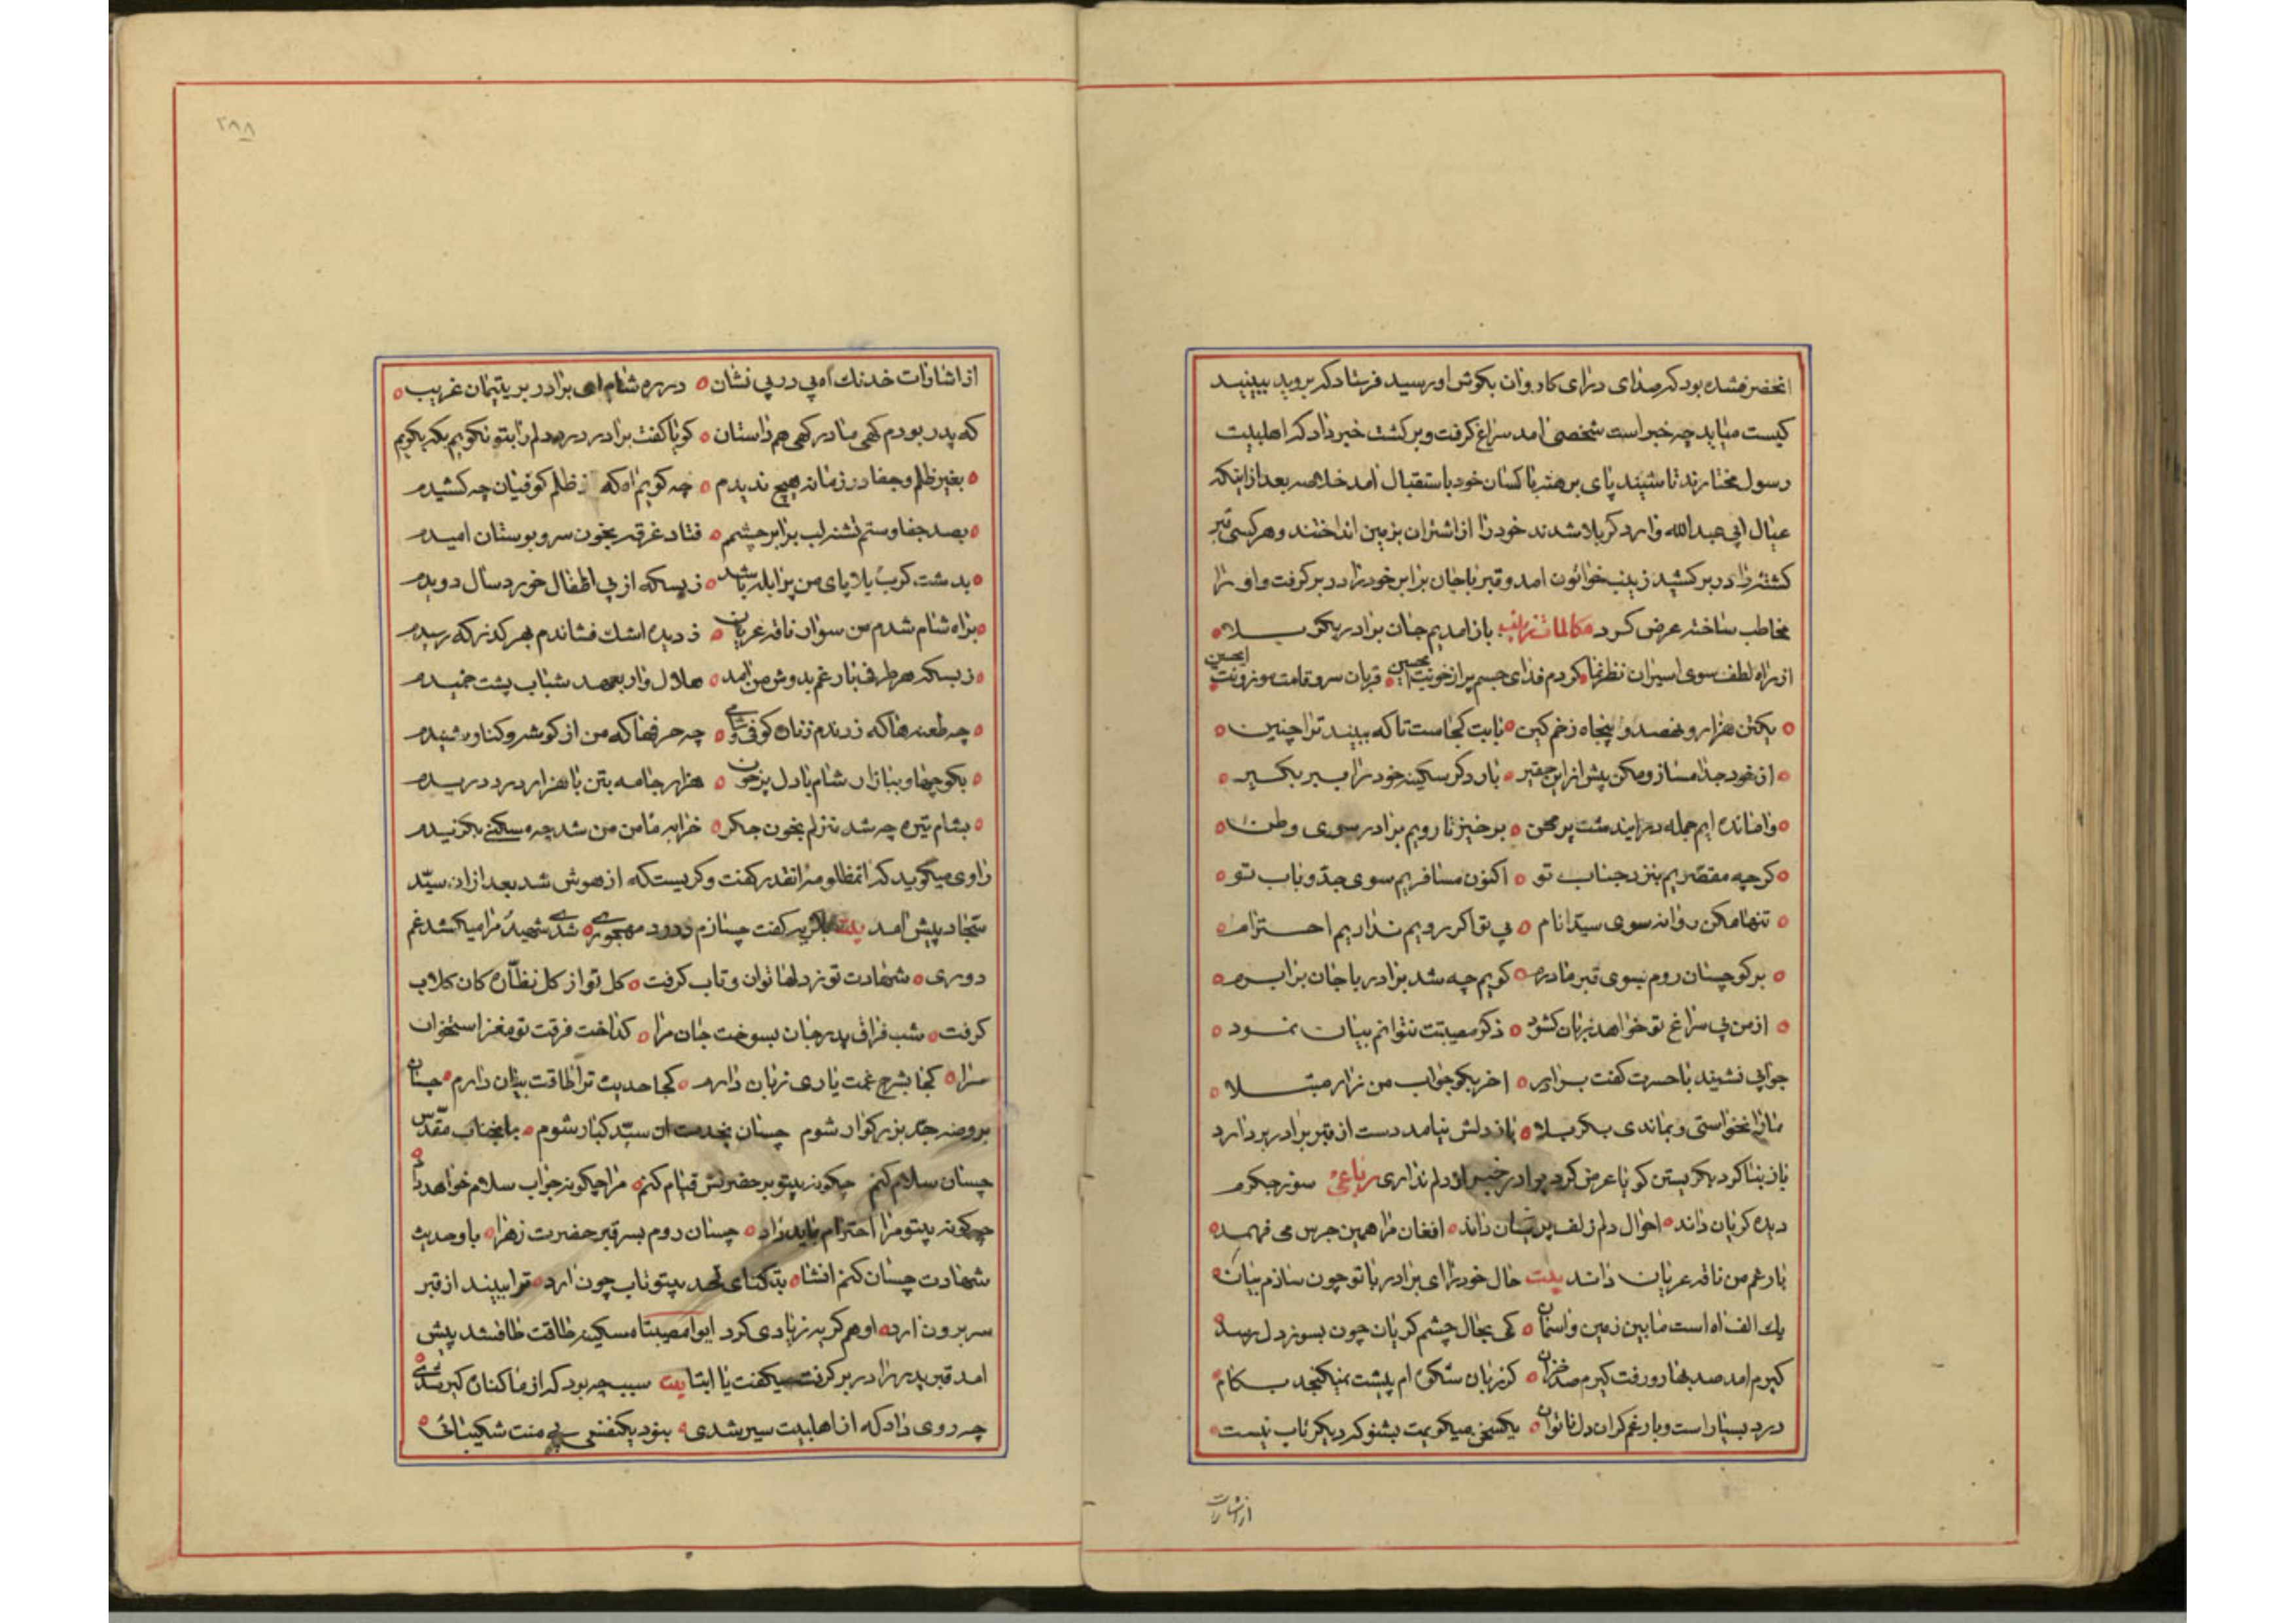 انحضرت شده بود که صدای درای کاروان بکوش او رسید فرستاد که بروید ببینید
کیست میاید چه خبر است شخصی امد سراغ کرفت و برکشت خبر داد که اهلبیت
رسول مختارند تا شنید پای برهنه با کسان خود باستقبال امد خلاصه بعد از اینکه
عیال ابی عبدالله وارد کربلا شدند خود را از اشتران بزمین انداختند و هر کسی قبر
کشته را در بر کشید زینب خواتون امد و قبر باجان برابر خود را در بر کرفت و او را
مخاطب ساخته عرض کرد مکالمات زینب باز امدیم جان برادر بکربلا
از راه لطف سوی اسیران نظر نما کردم فدای جسم پر از خونت ایحسین قربان سرو قامت موزونت ایحسین
یکتن هزار و نهصد و پنجاه زخم کین بابت کجاست تا که ببیند ترا چنین
از خود جدا مساز و مکن پیش از این حقیر بار دکر سکینه خود را ببر بکیر
وامانده ایم جمله در ایندشت پر محن برخیز تا رویم برادر سوی وطن
کرچه مقصریم بنزد جناب تو اکنون مسافریم سوی جد و باب تو
تنها مکن روانه سوی سیدانام بی تو اکر رویم نداریم احترام
برکو چسان روم بسوی قبر مادرم کویم چه شد برادر باجان برابرم
از من پی سراغ تو خواهد زبان کشود ذکر مصیبتت نتوانم بیان نمود
جوابی نشنید باحسرت کفت برادر اخر بکو جواب من زار مبتلا
مارا نخواستی و بماندی بکربلا باز دلش نیامد دست از قبر برادر بردارد
باز بنا کرد بکریستن کویا عرض کرد برادر خبر از دلم نداری رباعی سوز جکرم
دیده کریان داند احوال دلم زلف پریشان داند افغان مرا همین جرس می فهمد
بار غم من ناقه عریان داند بیت حال خود را ای برادر با تو چون سازم بیان
یك الف اه است مابین زمین و اسمان کی بحال چشم کریان چون بسوز دل رسد
کیرم امد صد بهار و رفت کیرم صد خزان کز زبان شکوه ام پیشت نمیکنجد بکام
درد بسیار است و بار غم کران دل ناتوان یکسخن میکویمت بشنو که دیکر تاب نیست
از اشارات
۲۸۸
از اشارات خدنك اه پی در پی نشان در ره شام ای برادر بر یتیمان غریب
که پدر بودم کهی مادر کهی هم داستان کویا کفت برادر درد دلم را بتو نکویم بکه بکویم
بغیر ظلم و جفا در زمانه هیچ ندیدم چه کویم اه که از ظلم کوفیان چه کشیدم
بصد جفا و ستم تشنه لب برابر چشمم فتاد غرقه بخون سرو بوستان امیدم
بدشت کرب بلا پای من پر ابله باشد ز بسکه از پی اطفال خورد سال دویدم
براه شام شدم من سوار ناقه عریان ز دیده اشك فشاندم بهر کذر که رسیدم
ز بسکه هر طرف بار غم بدوش من امد هلال وار بعهد شباب پشت خمیدم
چه طعنه ها که زدندم زنان کوفی و شامی چه حرفها که من از کوشه و کنار شنیدم
بکوچها و ببازار شام با دل پر خون هزار جامه بتن با هزار درد دریدم
بشام تیره چه شد منزلم بخون جکر خرابه مامن من شد چه مسکنی بکزیدم
راوی میکوید که انمظلومه انقدر کفت و کریست که از هوش شد بعد از ان سید
سجاد پیش امد بیت کفت چسازم درد مهجوری شدی شهید مرا میکشد غم
دوری شهادت تو ز دلها توان و تاب کرفت کل تو از کل نظاره کان کلاب
کرفت شب فراق پدر جان بسوخت جان مرا کداخت فرقت تو مغز استخوان
مرا کجا بشرح غمت یاری زبان دارم کجا حدیث ترا طاقت بیان دارم چسان
بروضه جد بزرکوار شوم چسان بخدمت ان سید کبار شوم بانجناب مقدس
چسان سلام کنم چکونه بیتو بر حضرتش قیام کنم مرا چکونه جواب سلام خواهد داد
چکونه بیتو مرا احترام باید زاد چسان روم بسر قبر حضرت زهرا باو حدیث
شهادت چسان کنم انشا بتنکنای لحد بیتو تاب چون ارد ترا ببیند از قبر
سر برون ارد او هم کریه زیادی کرد ایوا مصیبتاه سکینه طاقت طاقشد پیش
امد قبر پدر را در بر کرفت میکفت یا ابتا بیت سبب چه بود که از ما کنان کبر شدی
چه روی داد که از اهلبیت سیر شدی نبود یکنفسی بی منت شکیبائی